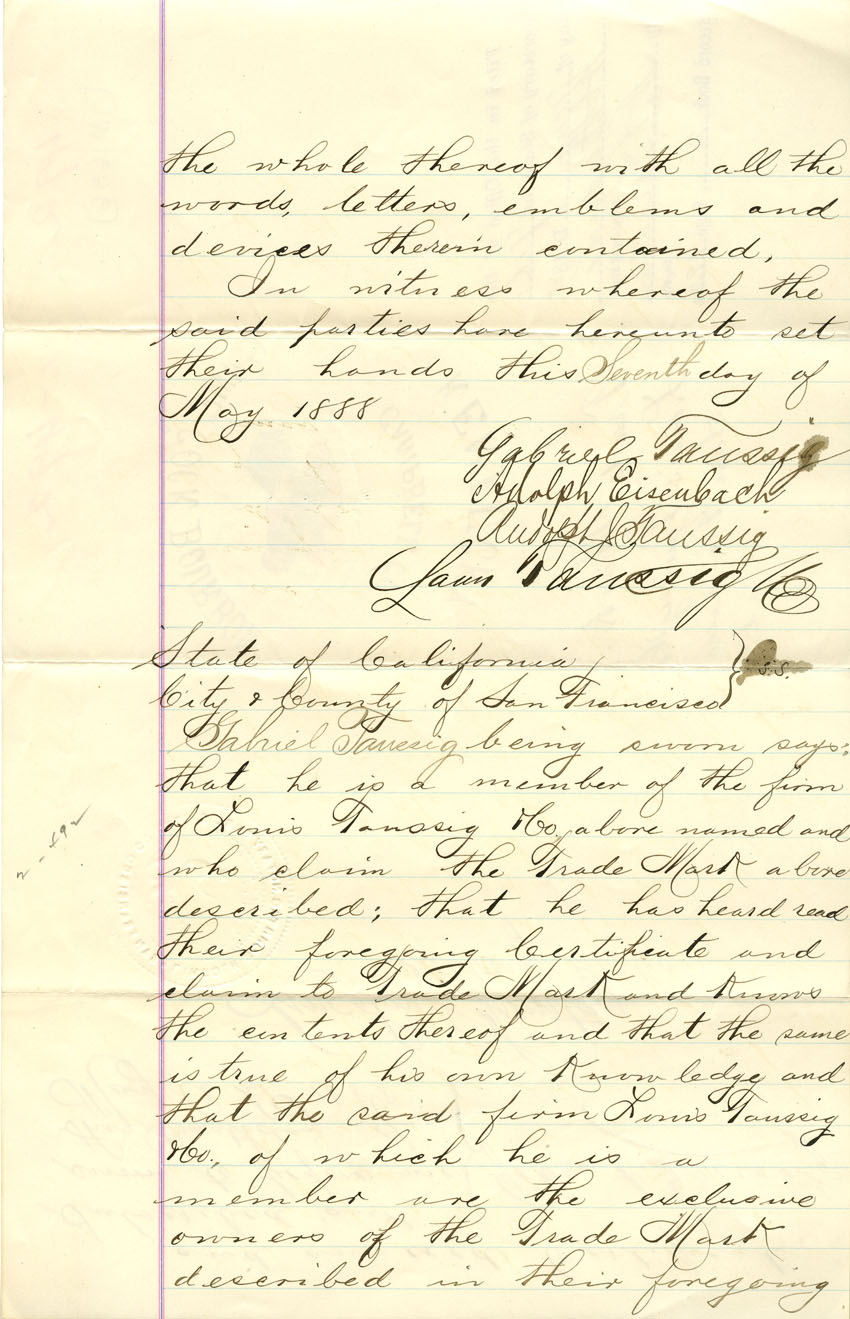 the whole thereof with all the
words, letters, emblems and
devices therein contained,
In witness whereof the
said parties have hereunto set
their hands this Seventh day of
May 1888
Gabriel Taussig
Adolph Eisenbach
Rudolph J Taussig
Louis Taussig & Co
State of California
City & County of San Francisco } S.S.
Gabriel Taussig being sworn says:
that he is a member of the firm
of Louis Taussig & Co. above named and
who claim the Trade Mark above
described; that he has heard read
their foregoing Certificate and
claim to Trade Mark and knows
the contents thereof and that the same
is true of his own knowledge and
that the said firm Louis Taussig
& Co., of which he is a
member are the exclusive
owners of the Trade Mark
described in their foregoing